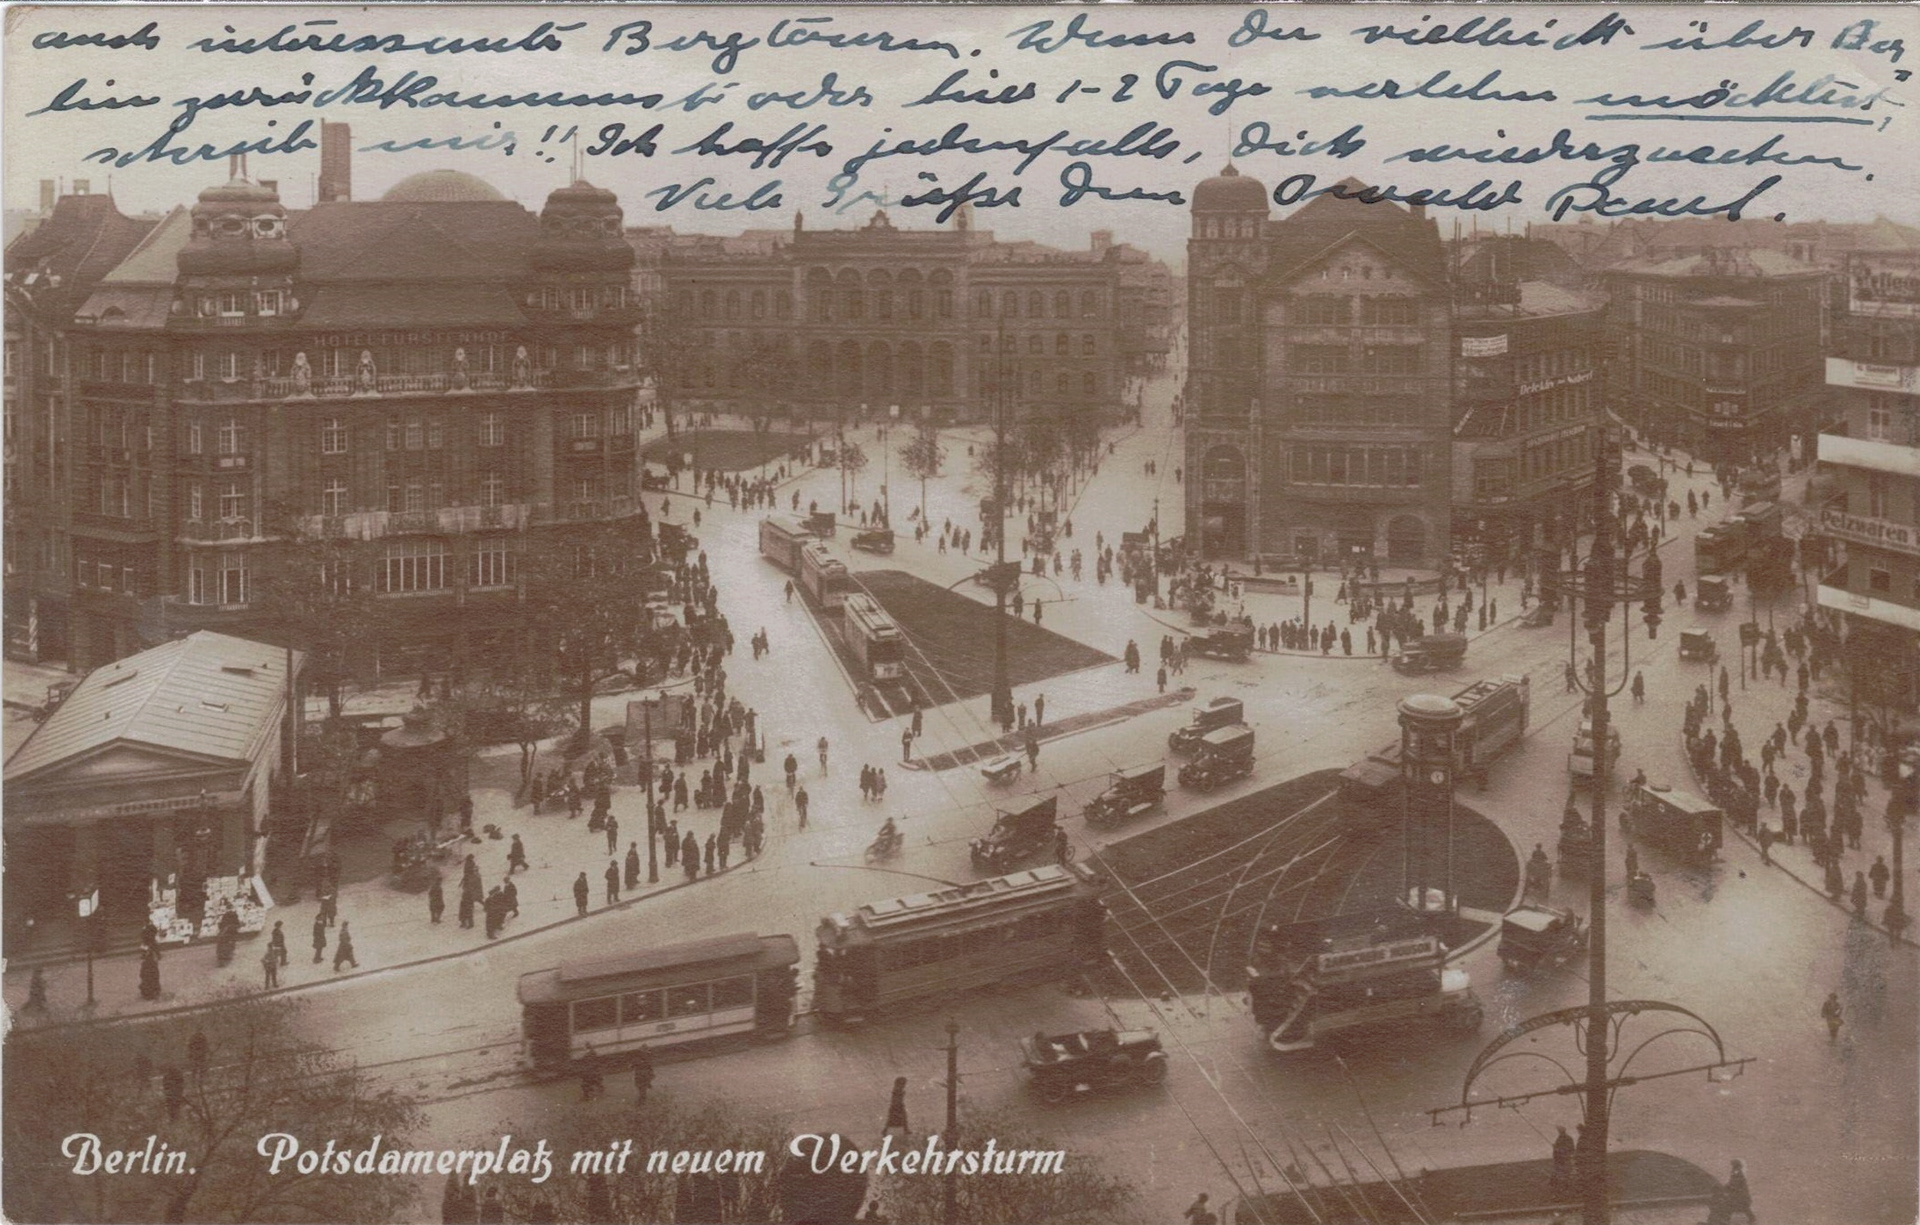 auch interessante Bergtouren. Wenn Du vielleicht über Ber-
lin zurückkommst oder hier 1-2 Tage verleben möchtest,
schreib mir!! Ich hoffe jedenfalls, Dich wiederzusehen.
Viele Grüße Dein Oswald Paul.
HOTEL FÜRSTENHOF
Pelzwaren
Berlin. Potsdamerplatz mit neuem Verkehrsturm